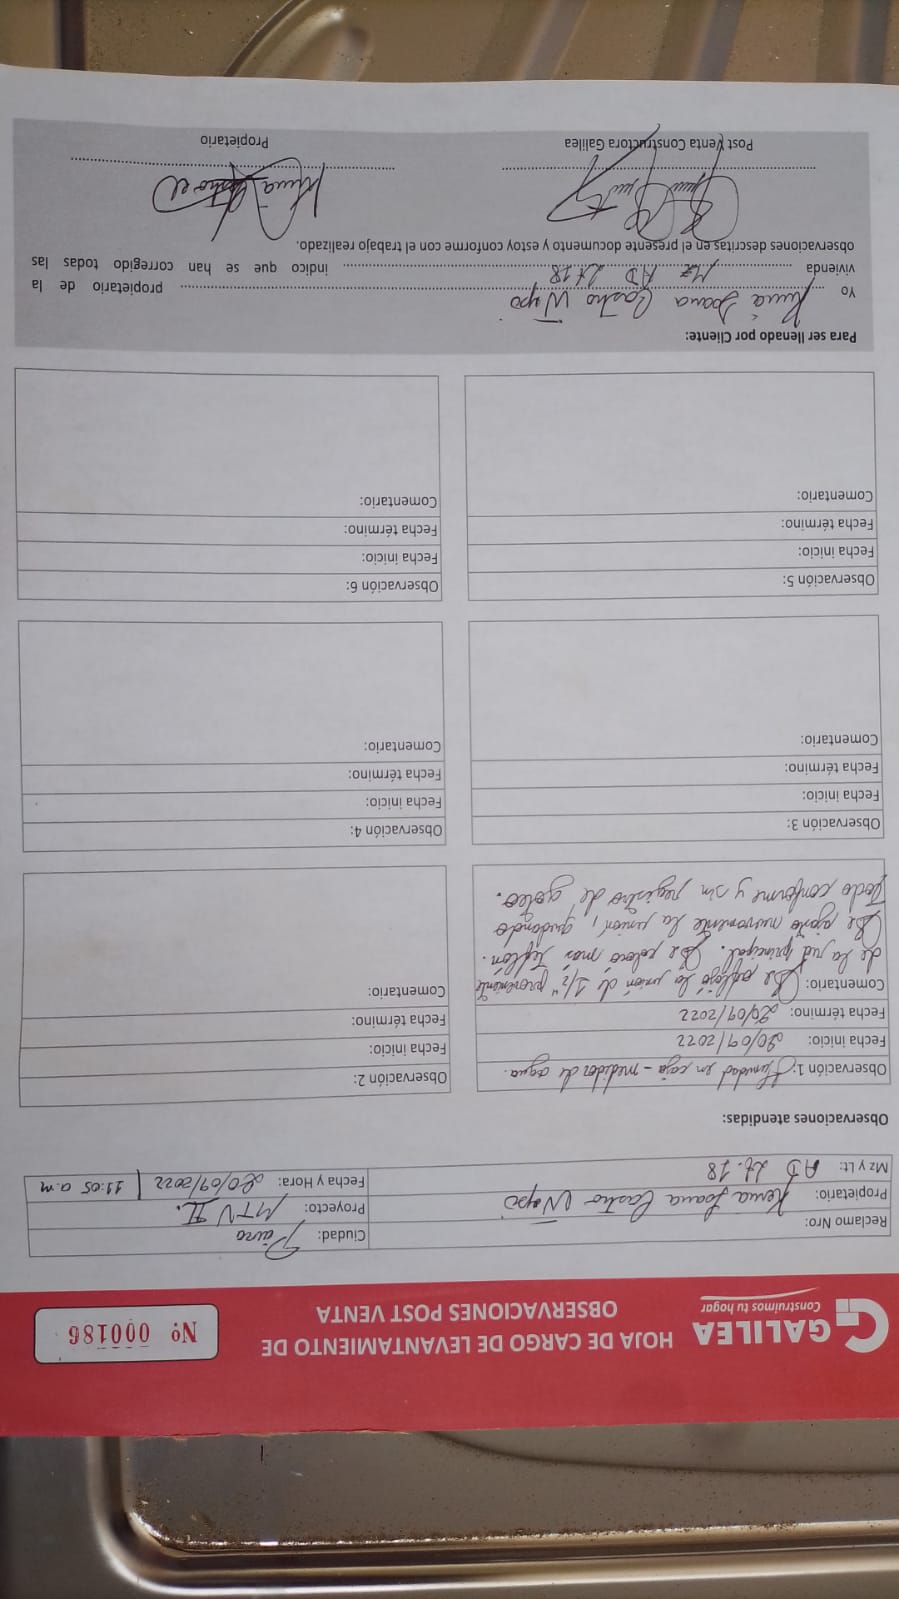 GALILEA
Construimos tu hogar
HOJA DE CARGO DE LEVANTAMIENTO DE
OBSERVACIONES POST VENTA
Nº 000186
Reclamo Nro:
Ciudad: Piura
Propietario: Kenia Joana Castro
Proyecto: MTN II.
Mz y Lt: AD Lt. 18
Fecha y Hora: 20/09/2022 | 11:05 a.m
Observaciones atendidas:
Observación 1: Humedad en caja - medidor de agua.
Fecha inicio: 20/09/2022
Fecha término: 20/09/2022
Comentario: Se aflojó la unión de 1/2" proveniente
de la red principal. Se coloco mas teflón.
Se ajusto nuevamente la unión, quedando
todo conforme y sin registro de goteo.
Observación 2:
Fecha inicio:
Fecha término:
Comentario:
Observación 3:
Fecha inicio:
Fecha término:
Comentario:
Observación 4:
Fecha inicio:
Fecha término:
Comentario:
Observación 5:
Fecha inicio:
Fecha término:
Comentario:
Observación 6:
Fecha inicio:
Fecha término:
Comentario:
Para ser llenado por Cliente:
Yo Kenia Joana Castro propietario de la
vivienda Mz AD Lt 18 indico que se han corregido todas las
observaciones descritas en el presente documento y estoy conforme con el trabajo realizado.
Post Venta Constructora Galilea
Propietario